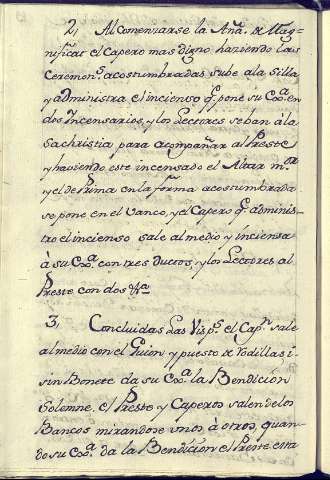 2, Al comenzarse la Añâ. de Mag-
nificat el Capero mas digno haziendo las
Ceremons. acostumbradas sube ala silla
y administra el incienso q. pone su Exa. en
dos Incensarios, y los Lectores se ban â la
Sachristia para acompañar al Preste
y haviendo este incensado el Altar mor.
y el de Prima en la forma acostumbrada
se pone en el Vanco, y el Capero q. adminis-
tro el incienso sale al medio y inciensa
â su Exa. con tres ductos, y los Lectores al
Preste con dos
3, Concluidas Las Visps. el Capn. sale
al medio con el Guion y puesto de Rodillas i
sin Bonete da su Exa. la Bendicion
Solemne. el Preste y Caperos salen delos
Bancos mirandose unos â otros, quan-
do su Exa. da la Bendicion el Preste esta